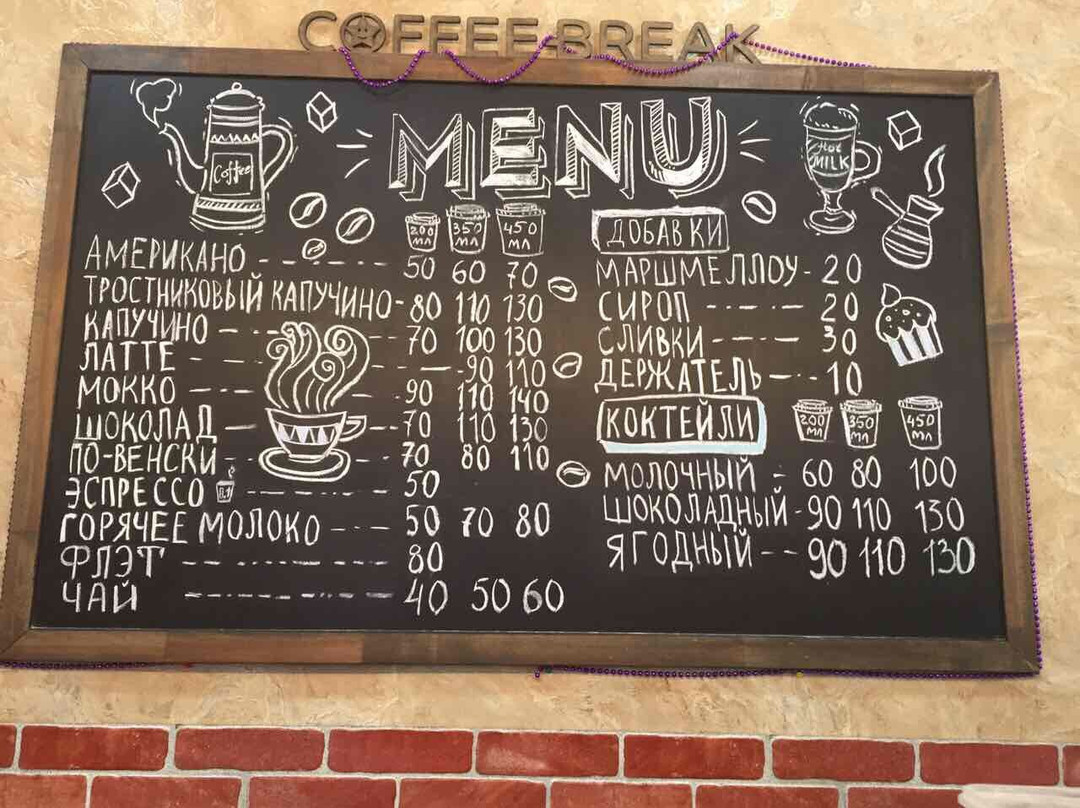 COFFEE BREAK
MENU
Coffee
Hot
MILK
200 МЛ 350 МЛ 450 МЛ
АМЕРИКАНО - - - - - 50 60 70
ТРОСТНИКОВЫЙ КАПУЧИНО - 80 110 130
КАПУЧИНО - - - - 70 100 130
ЛАТТЕ - - - - - 90 110
МОККО - - - - 90 110 140
ШОКОЛАД - - - 70 110 130
ПО-ВЕНСКИ - - - - 70 80 110
ЭСПРЕССО - - - - - 50
ГОРЯЧЕЕ МОЛОКО - - - 50 70 80
ФЛЭТ - - - - - - 80
ЧАЙ - - - - - - 40 50 60
ДОБАВКИ
МАРШМЕЛЛОУ - 20
СИРОП - - - - 20
СЛИВКИ - - - - 30
ДЕРЖАТЕЛЬ - - - 10
КОКТЕЙЛИ 200 МЛ 350 МЛ 450 МЛ
МОЛОЧНЫЙ - 60 80 100
ШОКОЛАДНЫЙ - 90 110 130
ЯГОДНЫЙ - - 90 110 130